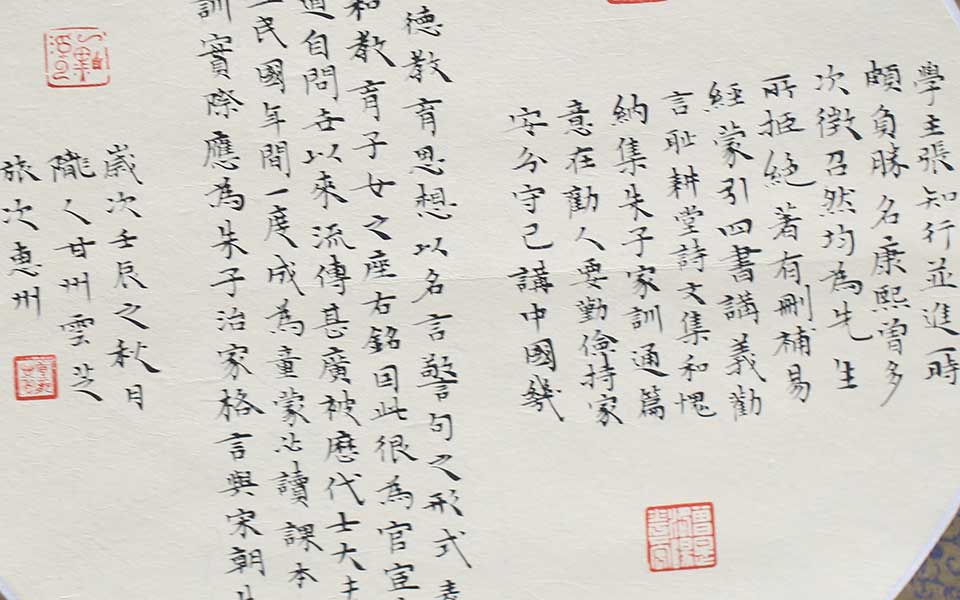 學主張知行並進一時
頗負勝名康熙曾多
次徵召然均為先生
所拒絕著有刪補易
經蒙引四書講義勸
言恥耕堂詩文集和愧
納集朱子家訓通篇
意在勸人要勤儉持家
安分守己講中國幾
德教育思想以名言警句之形式表
和教育子女之座右銘因此很為官宦
自問古以來流傳甚廣被歷代士大夫
民國年間一度成為童蒙必讀課本
訓實際應為朱子治家格言與宋朝
歲次壬辰之秋月
隴人甘州雲芝
旅次惠州